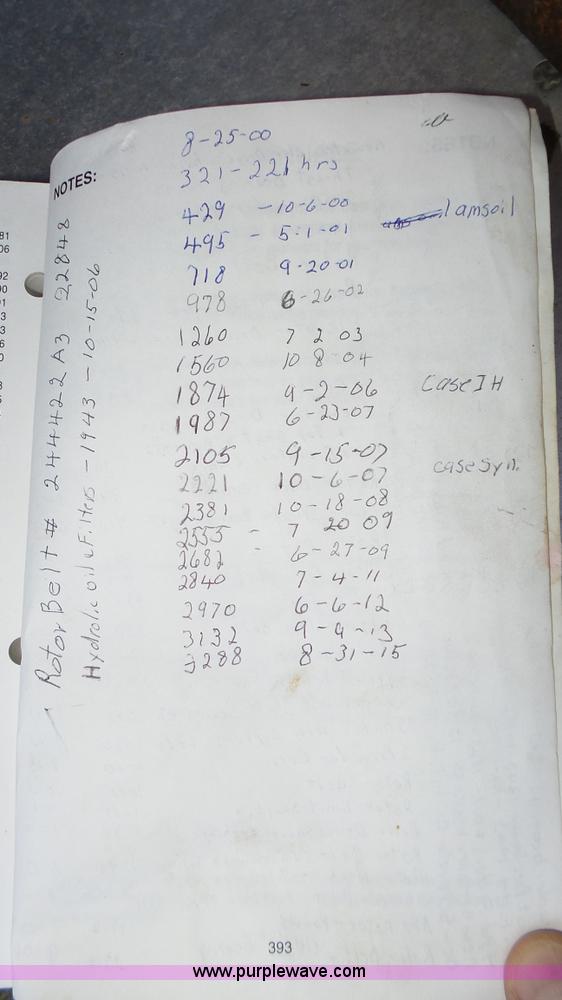 NOTES:
8-25-00
321-221 hrs
429 -10-6-00 amsoil
495 - 5-1-01
718 9-20-01
978 6-26-02
1260 7 2 03
1560 10 8 04
1874 9-2-06 Case IH
1987 6-23-07
2105 9-15-07
2221 10-6-07 case syn.
2381 10-18-08
2555 - 7 20 09
2682 - 6-27-09
2840 7-4-11
2970 6-6-12
3132 9-9-13
3288 8-31-15
Rotor Belt # 244422A3 22848
Hydrolic oil & Filters - 1943 - 10-15-06
393
www.purplewave.com